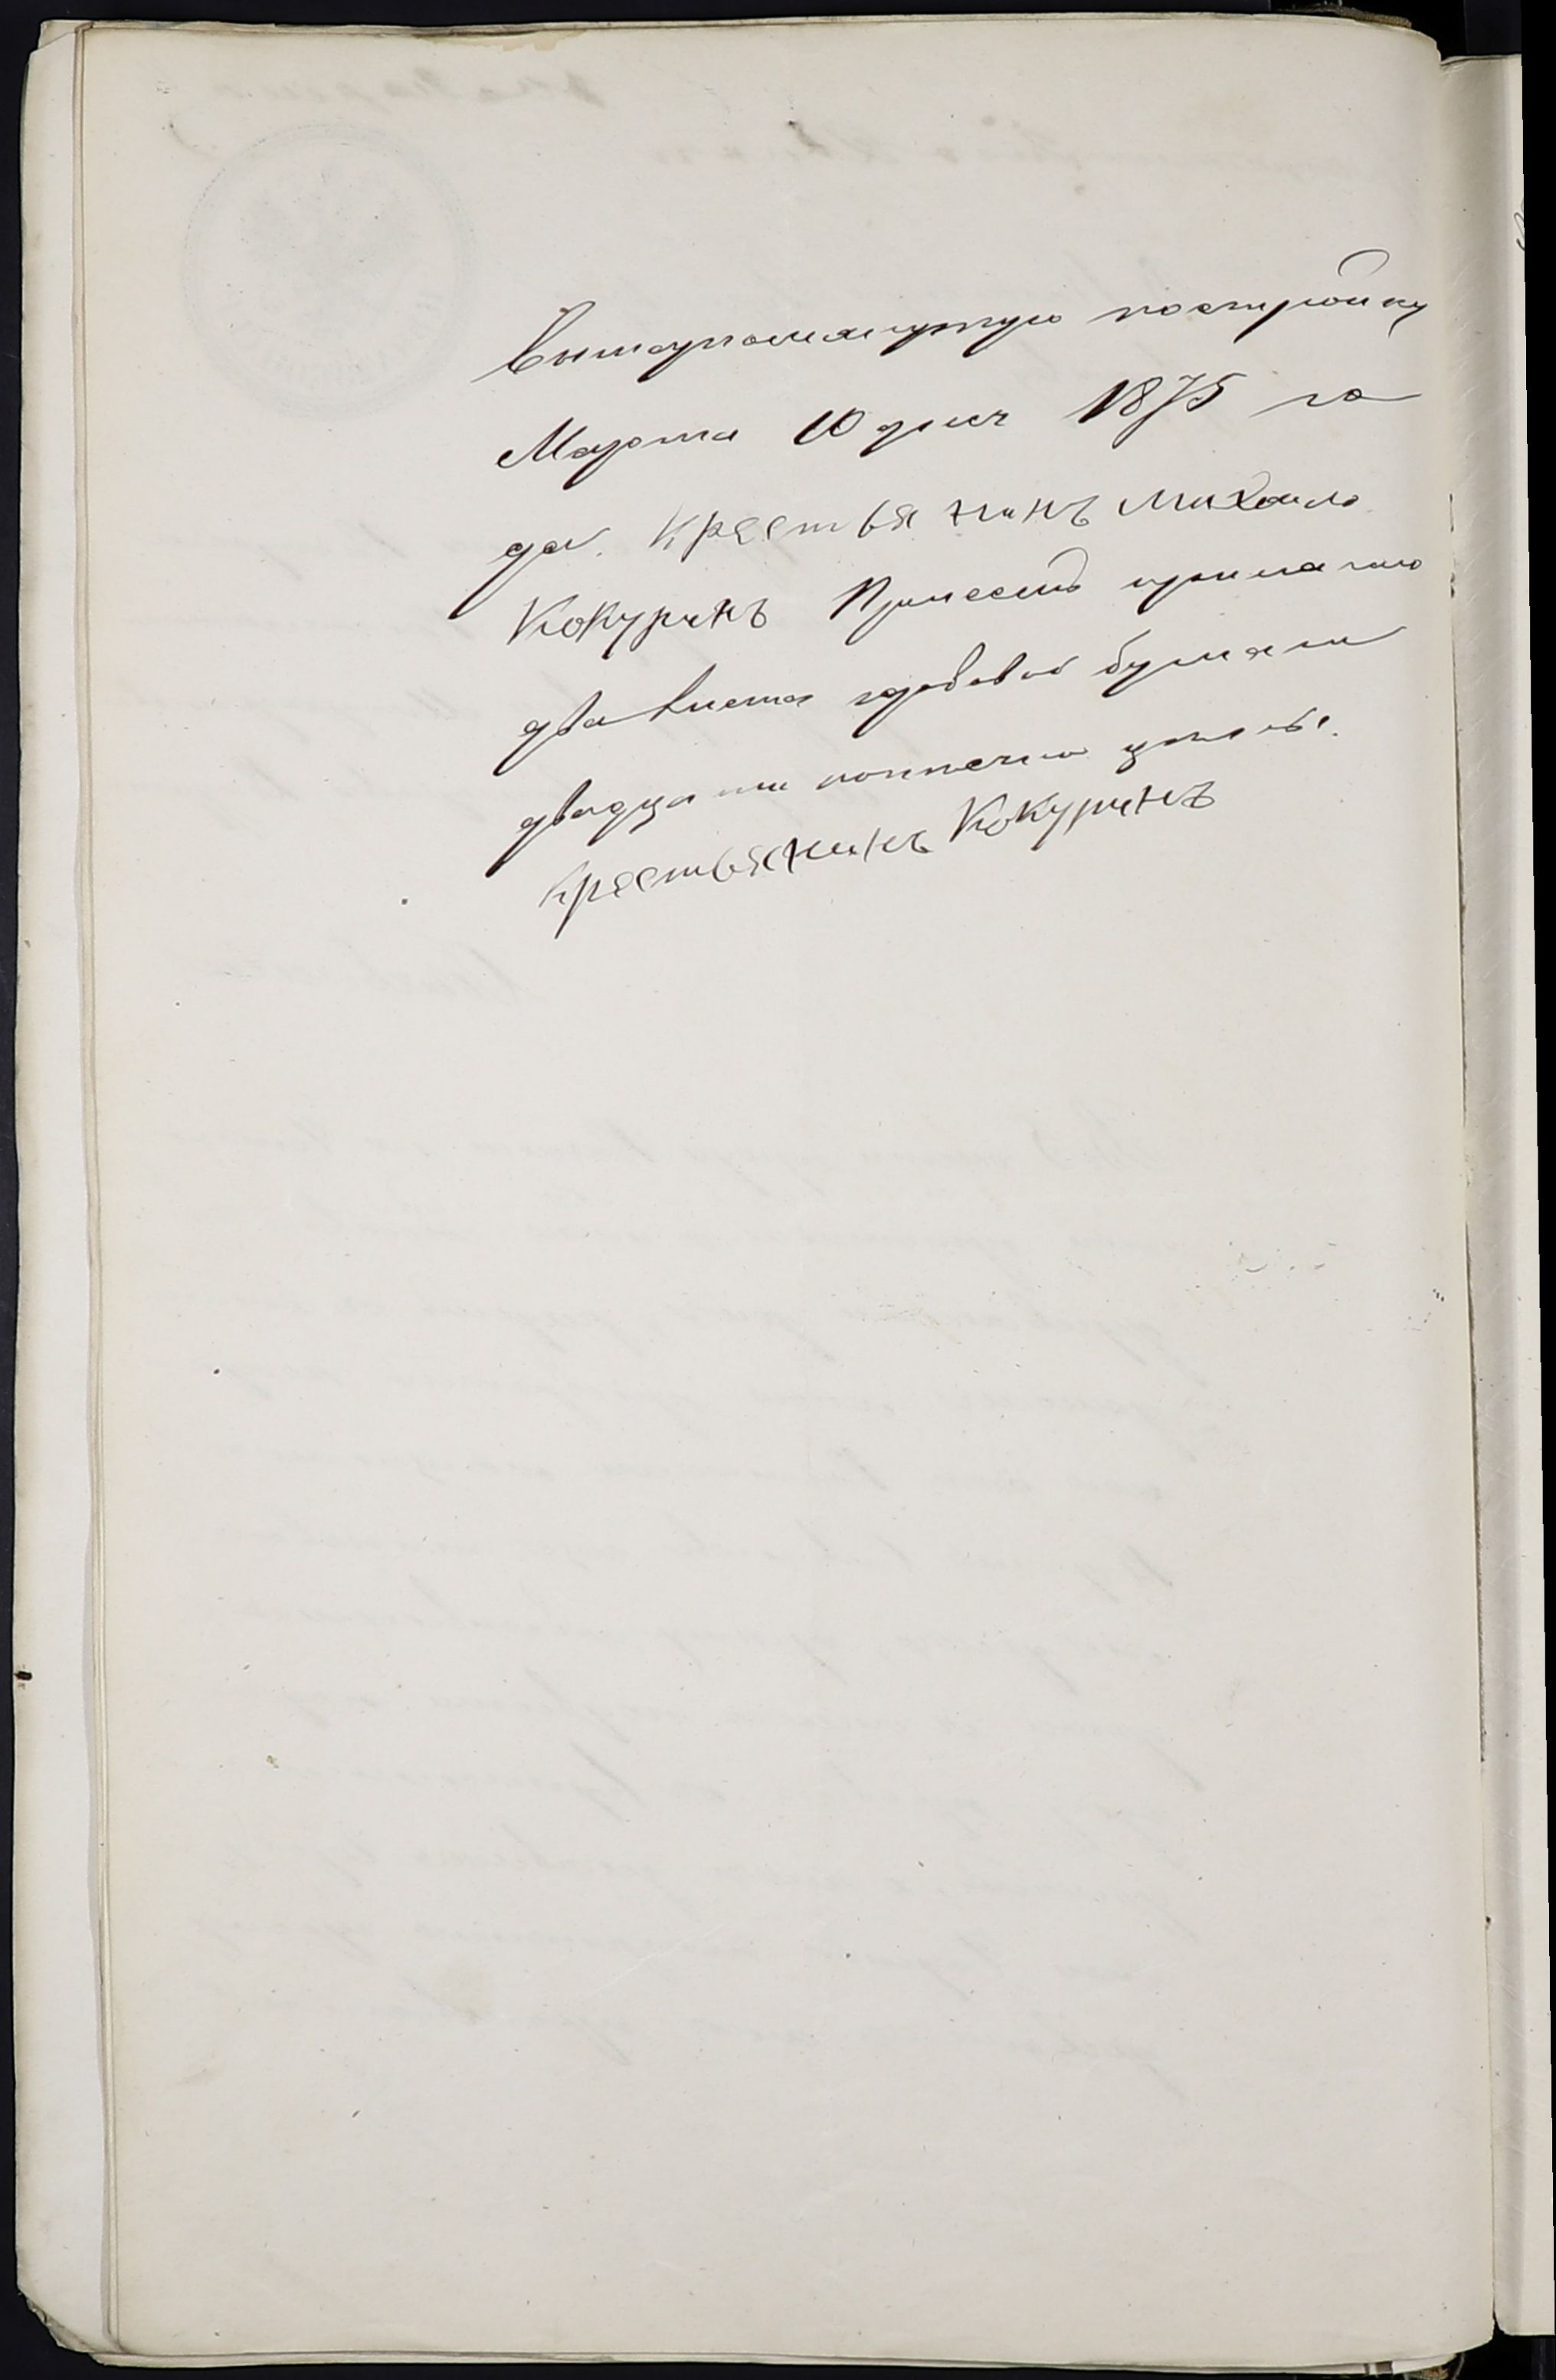 вышеупомянутую постройку
Марта 10 дня 1875 го
да. Крестьянинъ Михаило
Кокуринъ При семъ прилагаю
два листа гербовой бумаги
двадцати копеечно цены.
Крестьянинъ Кокуринъ